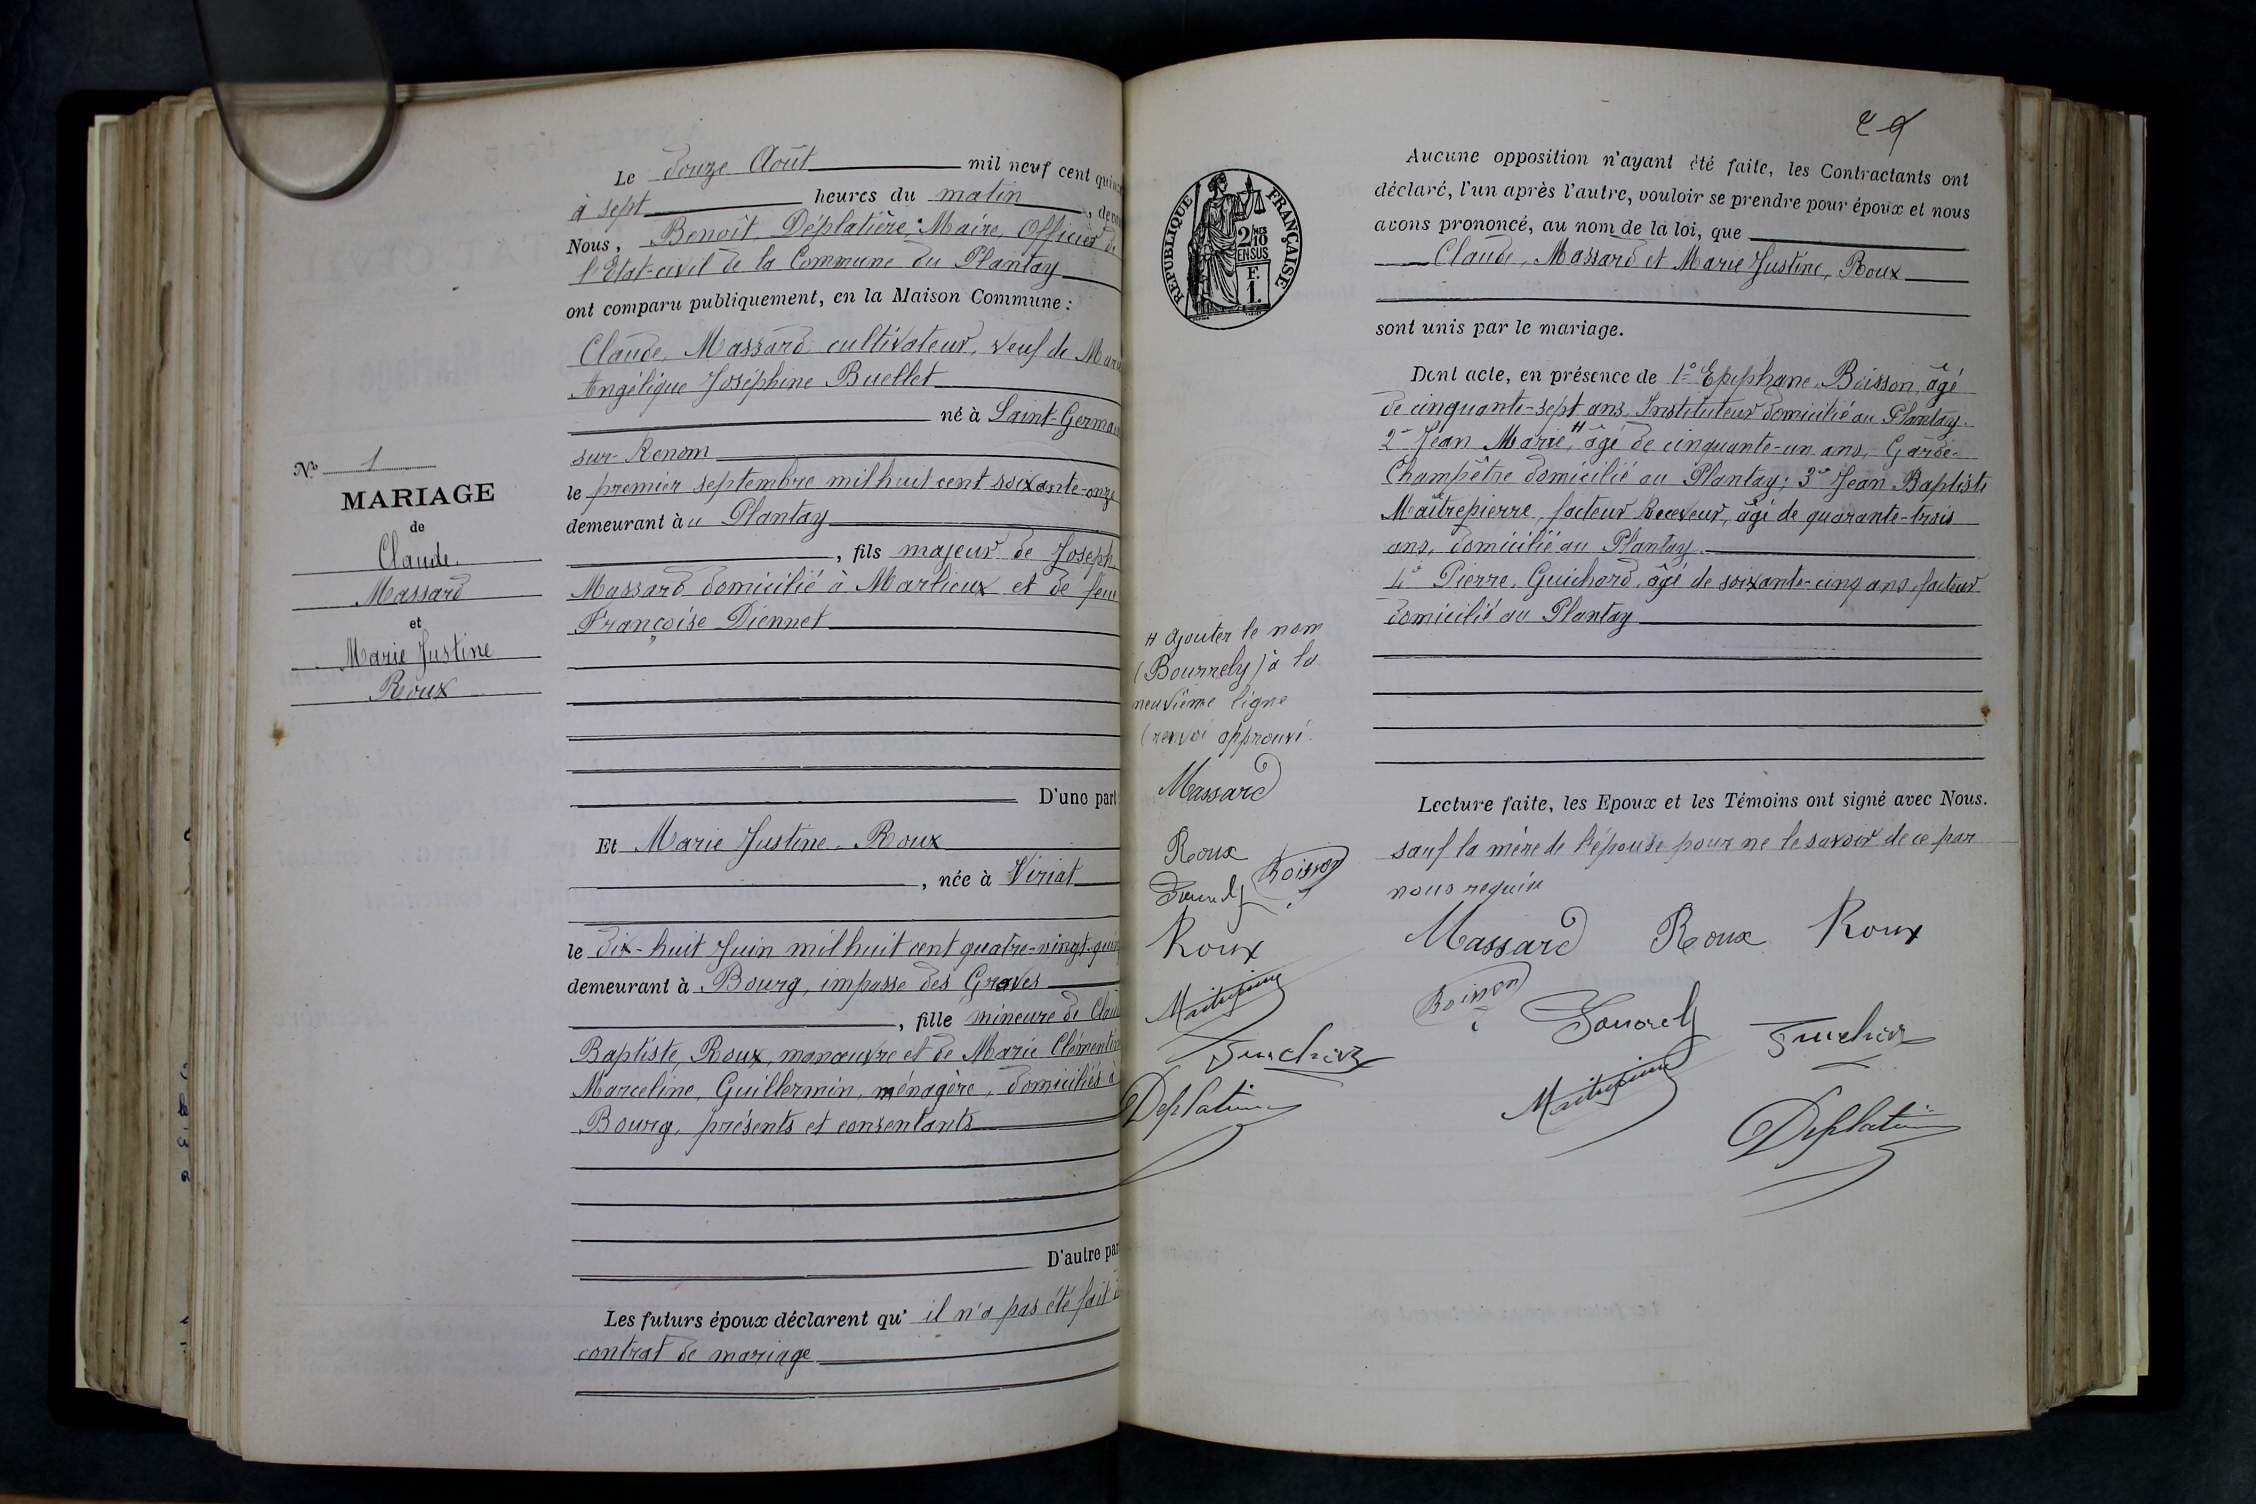 Le douze Août mil neuf cent quinze
à sept heures du matin, devant
Nous, Benoît Déplatière, Maire, Officier de
l'Etat-civil de la Commune du Plantay
ont comparu publiquement, en la Maison Commune :
Claude, Massard, cultivateur, veuf de Marie
Angélique Joséphine Buellet
né à Saint-Germain
sur-Renom
le premier septembre mil huit cent soixante-onze
demeurant à u Plantay
, fils majeur de Joseph
Massard domicilié à Marlieux et de feue
Françoise Diennet
D'une part
Et Marie Justine Roux
, née à Viriat
le dix-huit Juin mil huit cent quatre-vingt-quin
demeurant à Bourg, impasse des Graves
, fille mineure de Claude
Baptiste, Roux, manœuvre et de Marie Clémentine
Marceline, Guillermin, ménagère, domiciliés à
Bourg, présents et consentants
D'autre part
Les futurs époux déclarent qu' il n'a pas été fait de
contrat de mariage
N° 1
MARIAGE
de
Claude
Massard
et
Marie Justine
Roux
RÉPUBLIQUE FRANÇAISE
2/10
EN SUS
F.
1.
Aucune opposition n'ayant été faite, les Contractants ont
déclaré, l'un après l'autre, vouloir se prendre pour époux et nous
avons prononcé, au nom de la loi, que
Claude, Massard et Marie Justine, Roux
sont unis par le mariage.
Dont acte, en présence de 1° Epiphane Boisson, âgé
de cinquante-sept ans, Instituteur domicilié au Plantay.
2° Jean Marie, H âgé de cinquante-un ans, Garde-
Champêtre domicilié au Plantay; 3° Jean Baptiste
Maîtrepierre, facteur Receveur, âgé de quarante-trois
ans, domicilié au Plantay.
4° Pierre, Guichard, âgé de soixante-cinq ans, facteur
domicilié au Plantay
Lecture faite, les Epoux et les Témoins ont signé avec Nous.
sauf la mère de l'épouse pour ne le savoir de ce par
nous requise
Massard Roux Roux
Boisson
Maitrepierre
Deplatière
H Ajouter le nom
(Bourrely) à la
neuvième ligne
(renvoi approuvé
Massard
Roux
Boisson
Roux
Maitrepierre
Deplatière